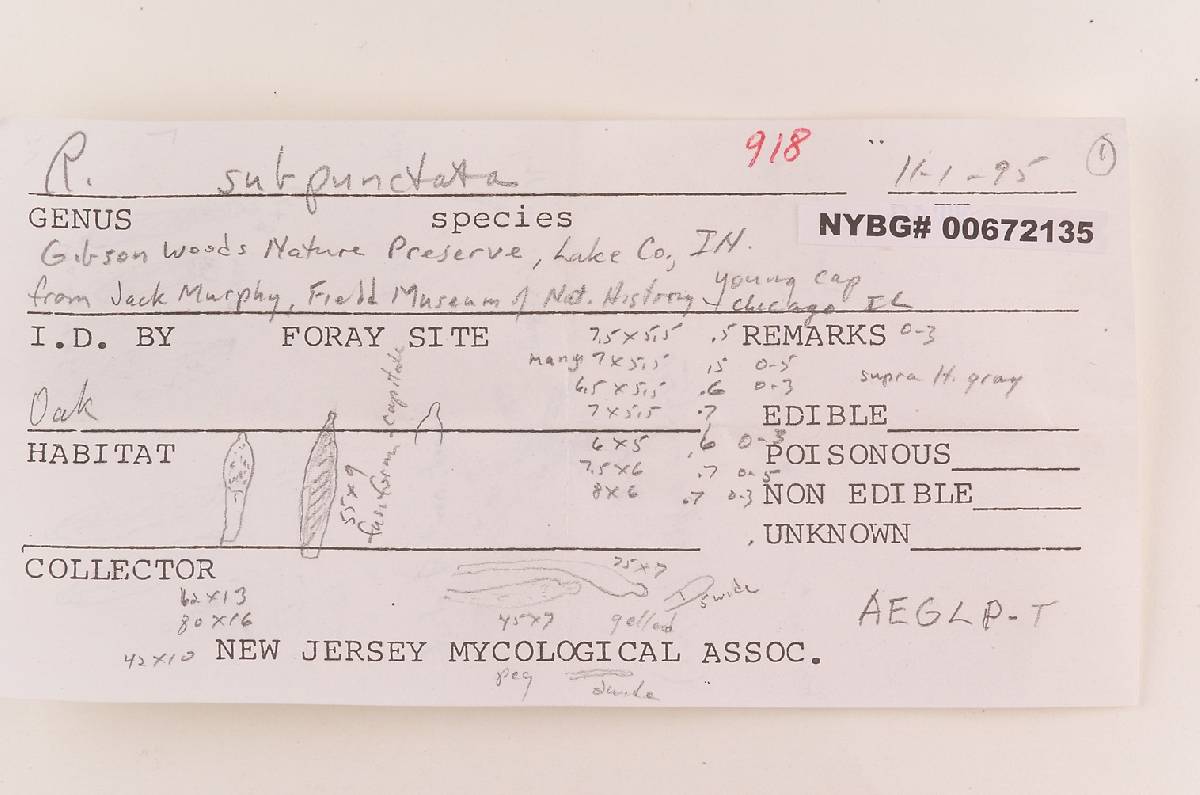 918
11-1-95
1
R. subpunctata
GENUS species
NYBG# 00672135
Gibson Woods Nature Preserve, Lake Co., IN.
young cap
from Jack Murphy, Field Museum of Nat. History, Chicago IL
I.D. BY FORAY SITE REMARKS
7.5 x 5.5 .5 0-3
many 7 x 5.5 .5 0-5
supra H. gray
6.5 x 5.5 .6 0-3
Oak
7 x 5.5 .7 EDIBLE
HABITAT
6 x 5 .6
POISONOUS
7.5 x 6 .7 0-5
8 x 6 .7 0-3 NON EDIBLE
55 x 9
fusiform - capitate
UNKNOWN
COLLECTOR
75 x 7
62 x 13
80 x 16
45 x 7 gelled
AEGLP-T
42 x 10 NEW JERSEY MYCOLOGICAL ASSOC.
peg